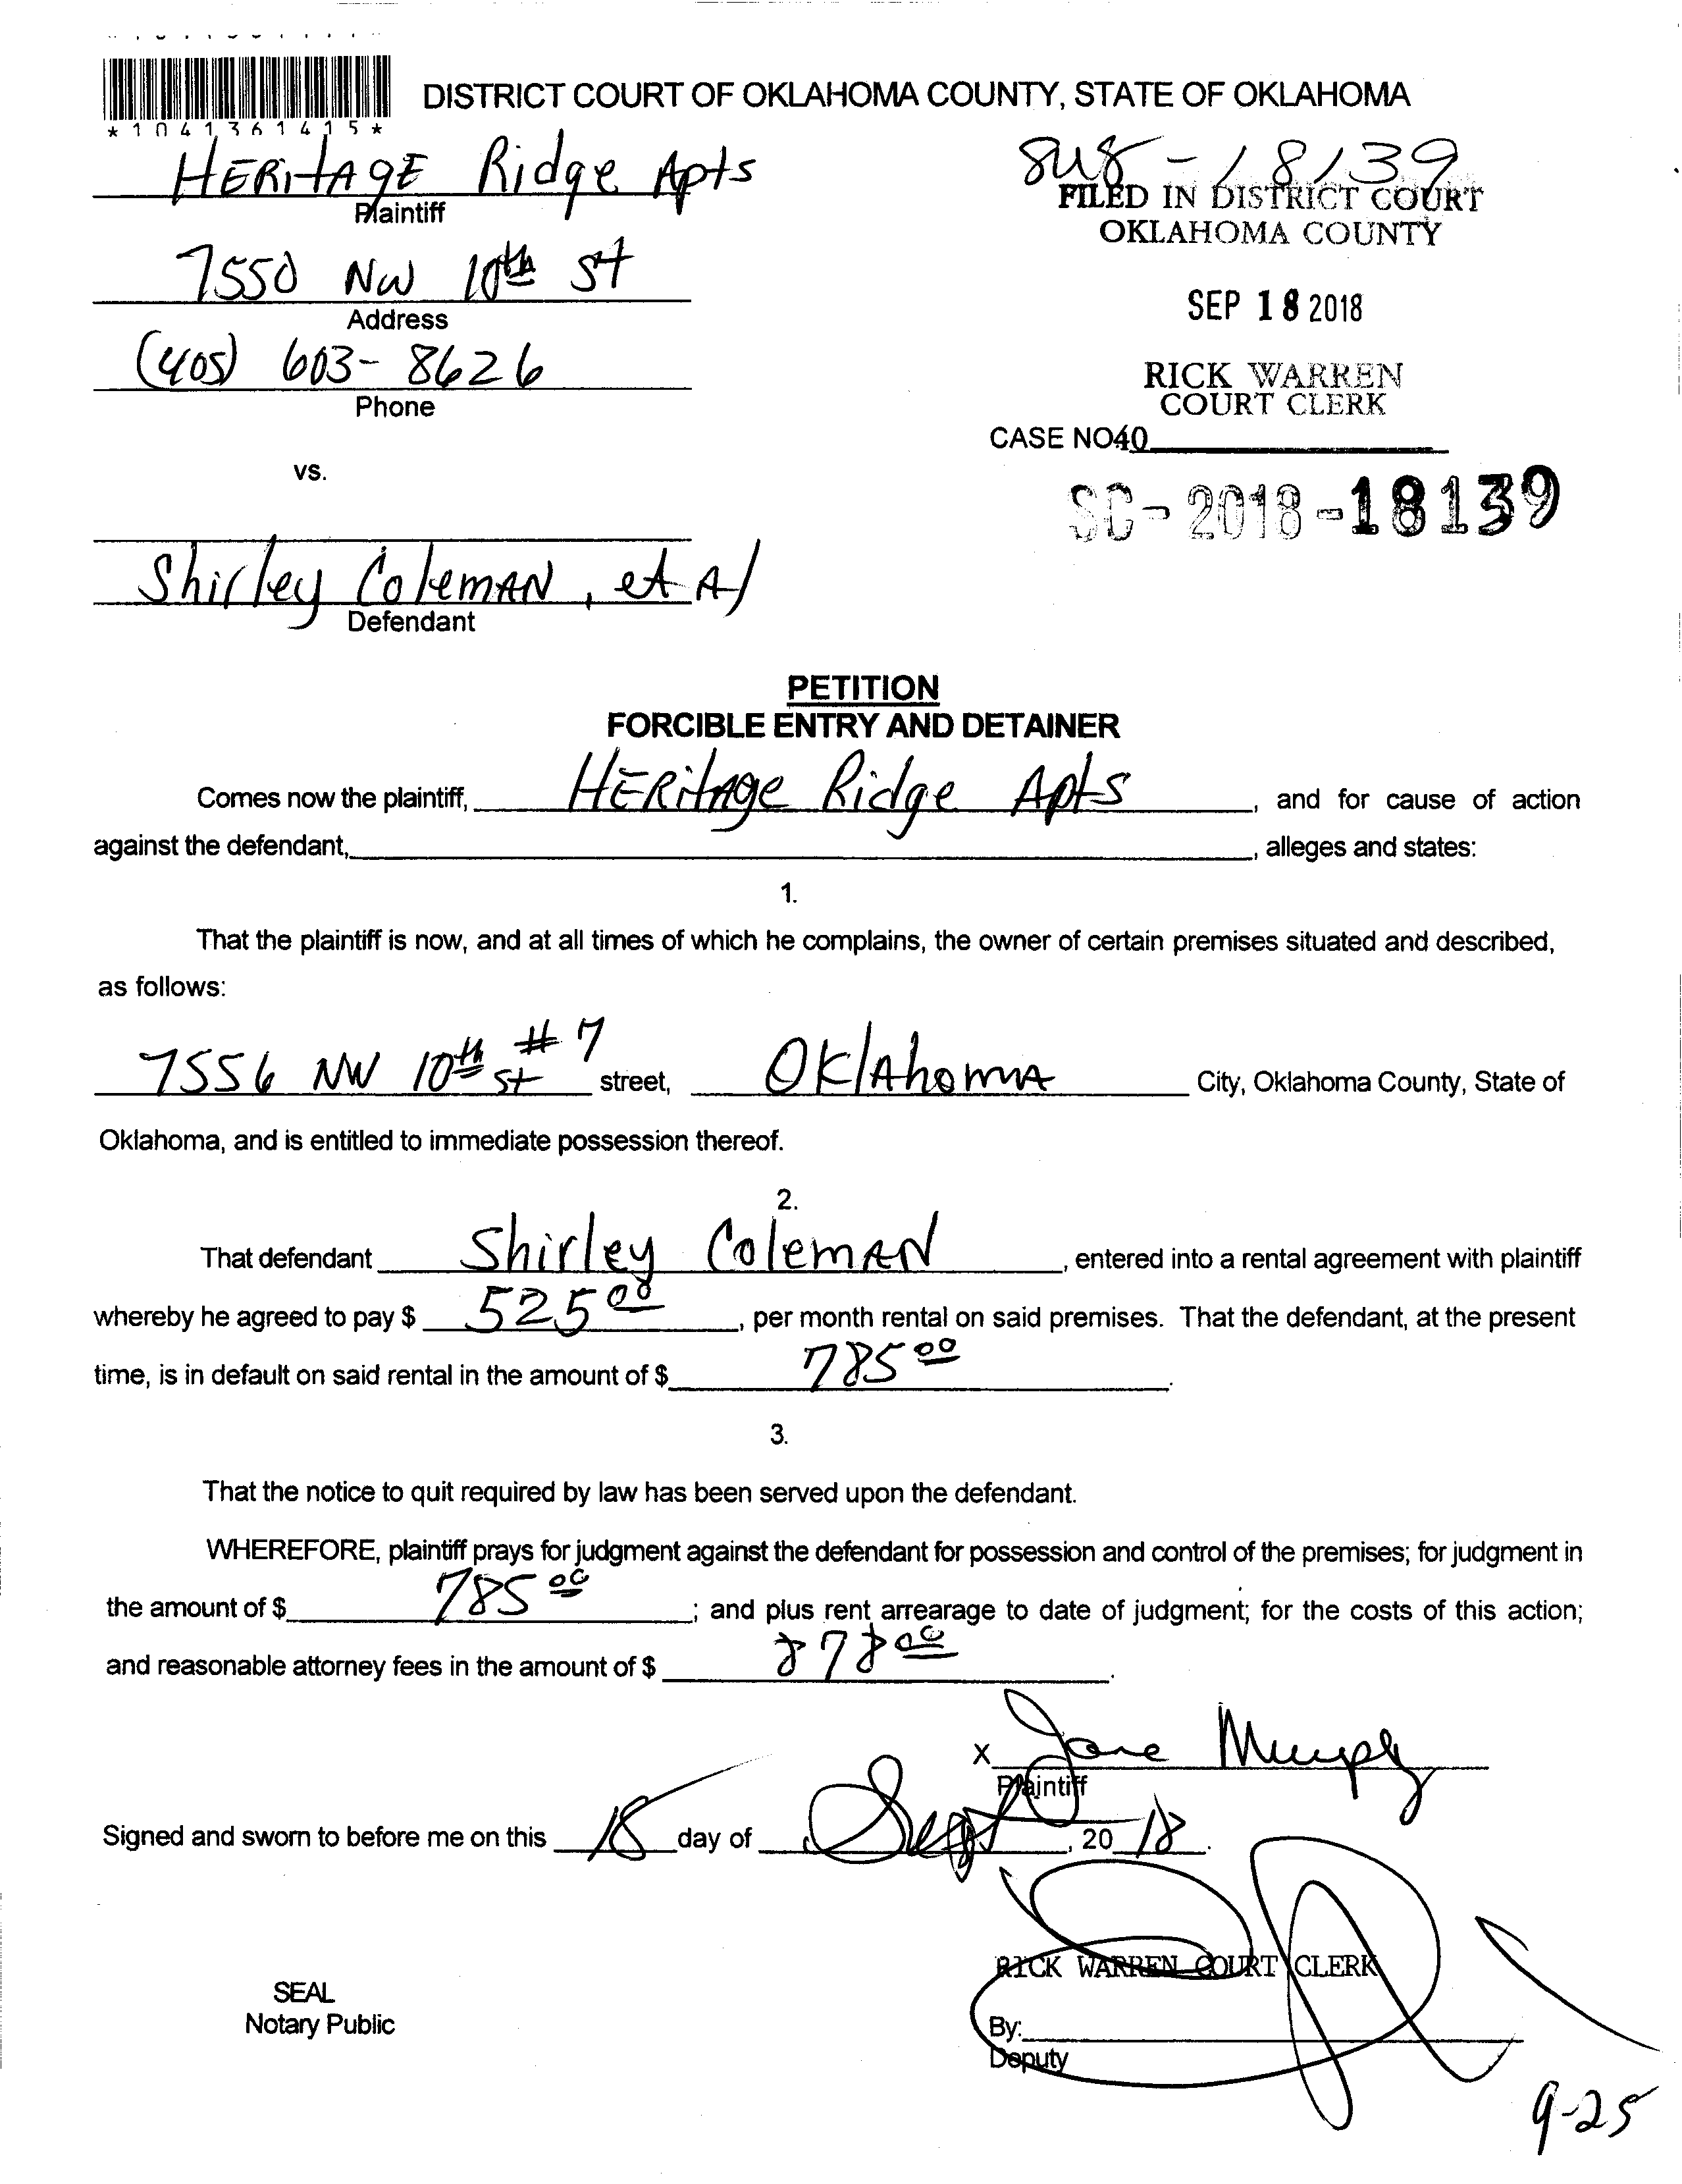 *1041361415*
DISTRICT COURT OF OKLAHOMA COUNTY, STATE OF OKLAHOMA
HERitAgE Ridge Apts
Plaintiff
18139
FILED IN DISTRICT COURT
OKLAHOMA COUNTY
7550 NW 10th St
Address
SEP 18 2018
(405) 603-8626
Phone
RICK WARREN
COURT CLERK
CASE NO 40
vs.
SC-2018-18139
Shirley ColemAN, et Al
Defendant
PETITION
FORCIBLE ENTRY AND DETAINER
Comes now the plaintiff, HERitAge Ridge Apts, and for cause of action
against the defendant, , alleges and states:
1.
That the plaintiff is now, and at all times of which he complains, the owner of certain premises situated and described,
as follows:
7556 NW 10th St #7 street, OklAhomA City, Oklahoma County, State of
Oklahoma, and is entitled to immediate possession thereof.
2.
That defendant Shirley ColemAN, entered into a rental agreement with plaintiff
whereby he agreed to pay $ 525 00, per month rental on said premises. That the defendant, at the present
time, is in default on said rental in the amount of $ 785 00.
3.
That the notice to quit required by law has been served upon the defendant.
WHEREFORE, plaintiff prays for judgment against the defendant for possession and control of the premises; for judgment in
the amount of $ 785 00; and plus rent arrearage to date of judgment; for the costs of this action;
and reasonable attorney fees in the amount of $ 878 00.
X Jane Murphy
Plaintiff
Signed and sworn to before me on this 18 day of Sept, 20 18.
RICK WARREN COURT CLERK
SEAL
Notary Public
By:
Deputy
9-25